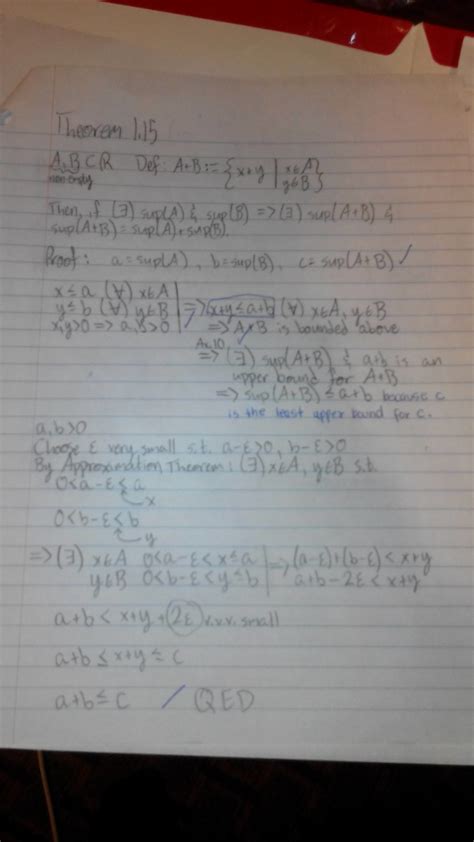 Theorem 1.15
A, B ⊂ R Def: A+B := { x+y | x∈A
y∈B }
non-empty
Then, if (∃) sup(A) & sup(B) => (∃) sup(A+B) &
sup(A+B) = sup(A) + sup(B).
Proof: a = sup(A), b = sup(B), c = sup(A+B) ✓
x ≤ a (∀) x∈A | => x+y ≤ a+b (∀) x∈A, y∈B
y ≤ b (∀) y∈B | => A+B is bounded above
x,y>0 => a,b>0
Ax.10
=> (∃) sup(A+B) & a+b is an
upper bound for A+B
=> sup(A+B) ≤ a+b because c
is the least upper bound for c.
a,b>0
Choose ε very small s.t. a-ε>0, b-ε>0
By Approximation Theorem: (∃) x∈A, y∈B s.t.
0<a-ε≤a
x
0<b-ε<b
y
=> (∃) x∈A 0<a-ε<x≤a | => (a-ε)+(b-ε) < x+y
y∈B 0<b-ε<y≤b | a+b-2ε < x+y
a+b < x+y + 2ε v.v.v. small
a+b ≤ x+y ≤ c
a+b ≤ c / QED